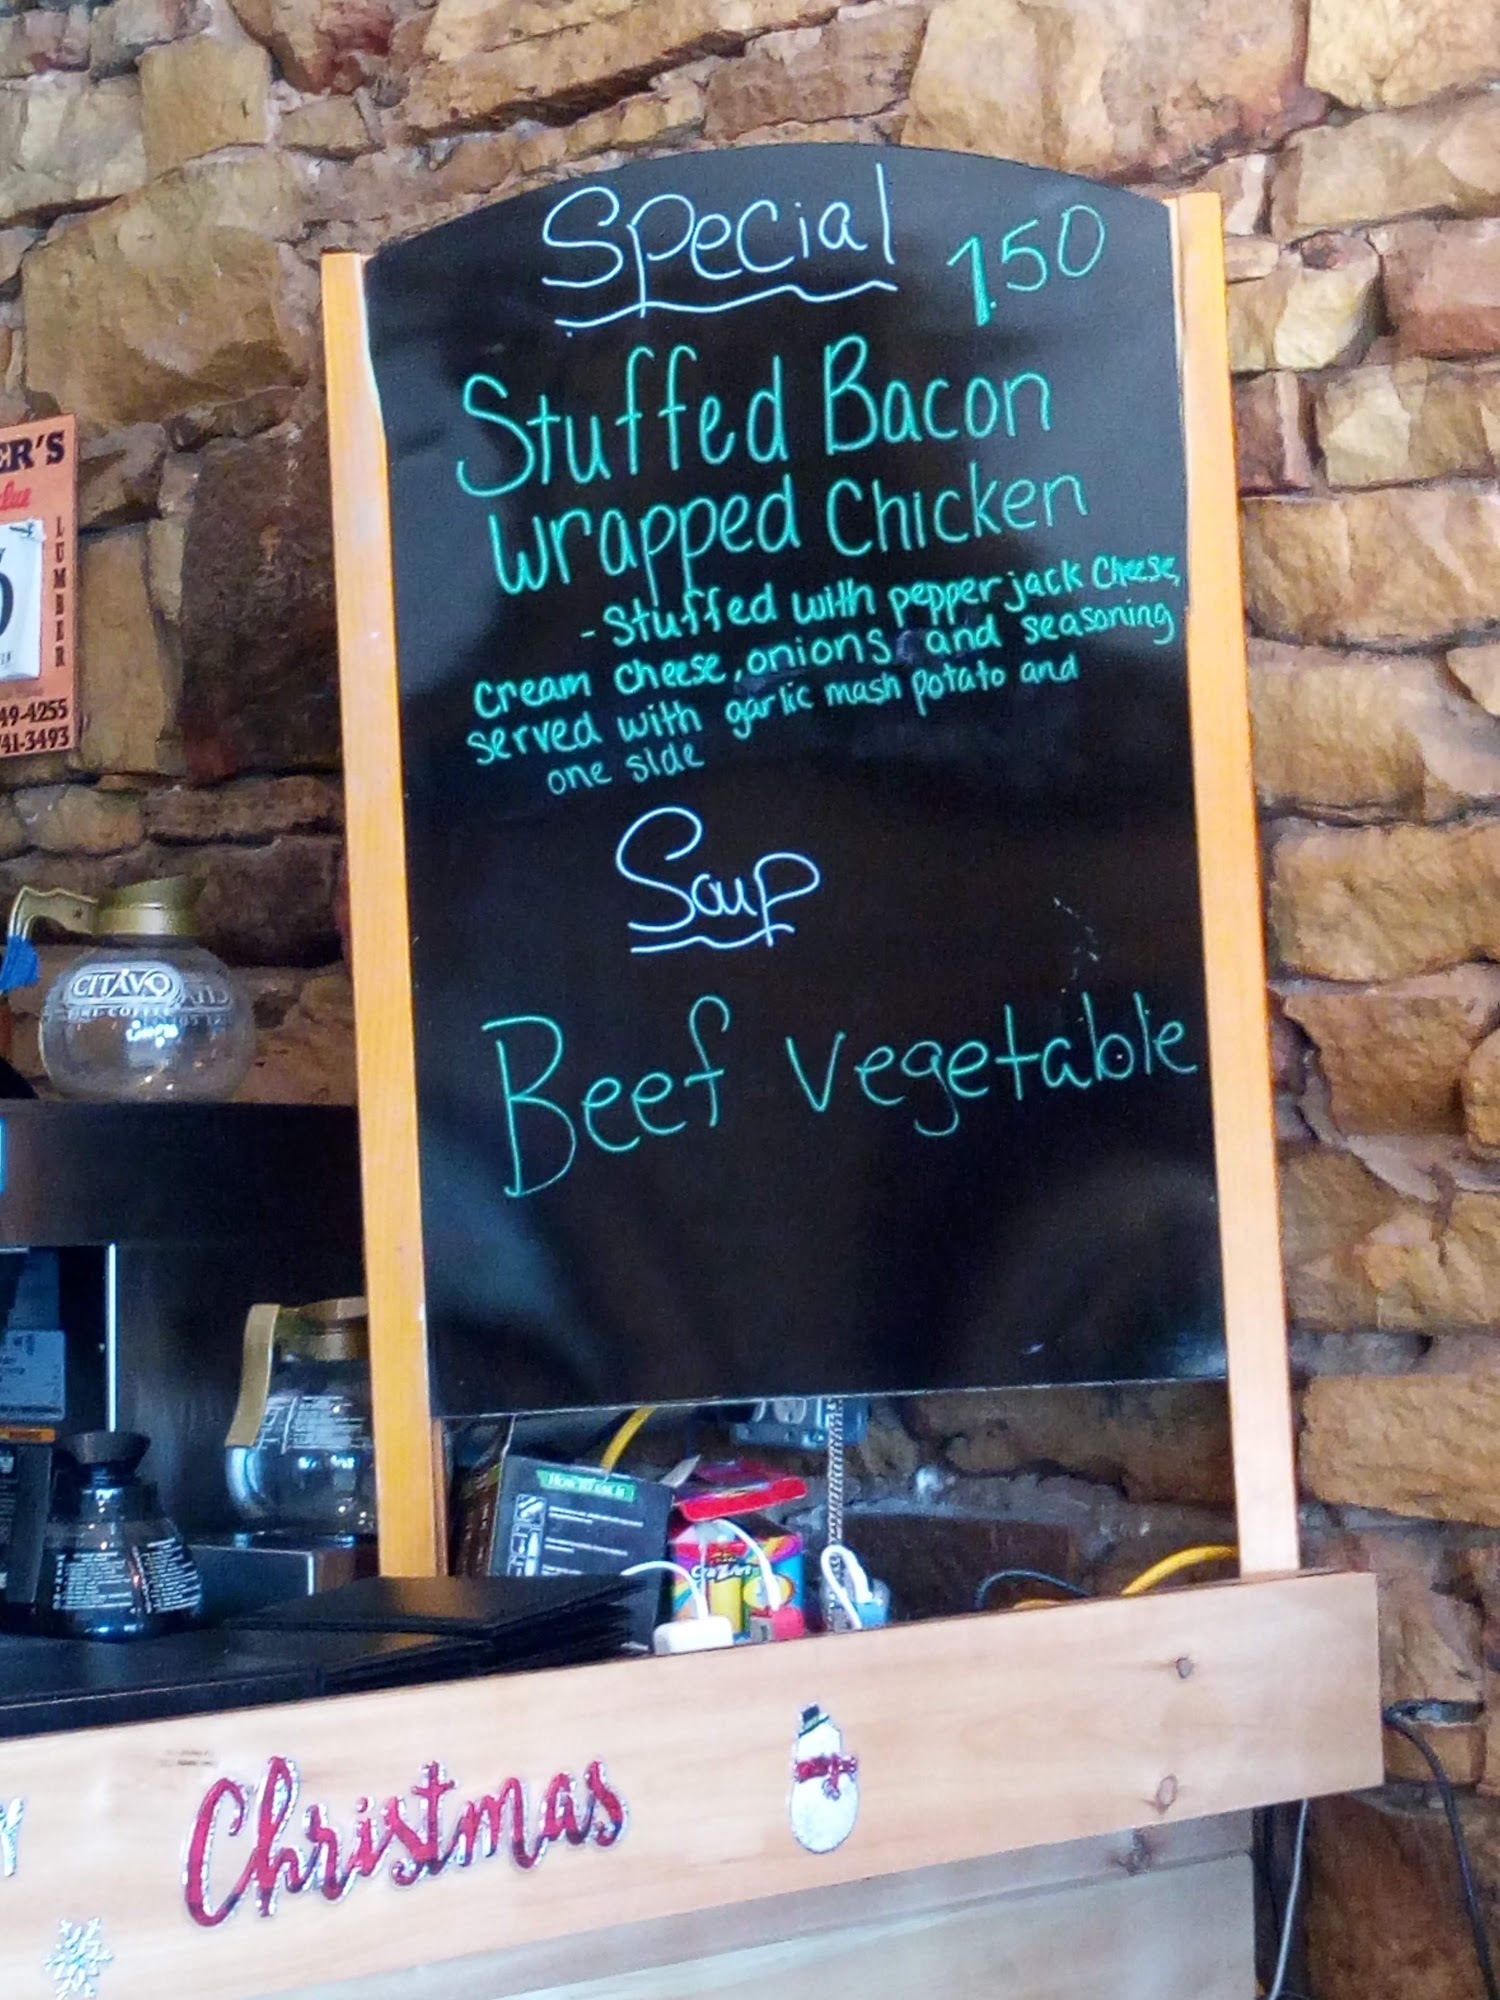 Special
7.50
Stuffed Bacon
wrapped Chicken
- Stuffed with pepper jack cheese,
cream cheese, onions and seasoning
served with garlic mash potato and
one side
Soup
Beef Vegetable
ER'S
LUMBER
49-4255
741-3493
CITAVO
HOW TO USE IT
Cra-Z-Art
Y
Christmas